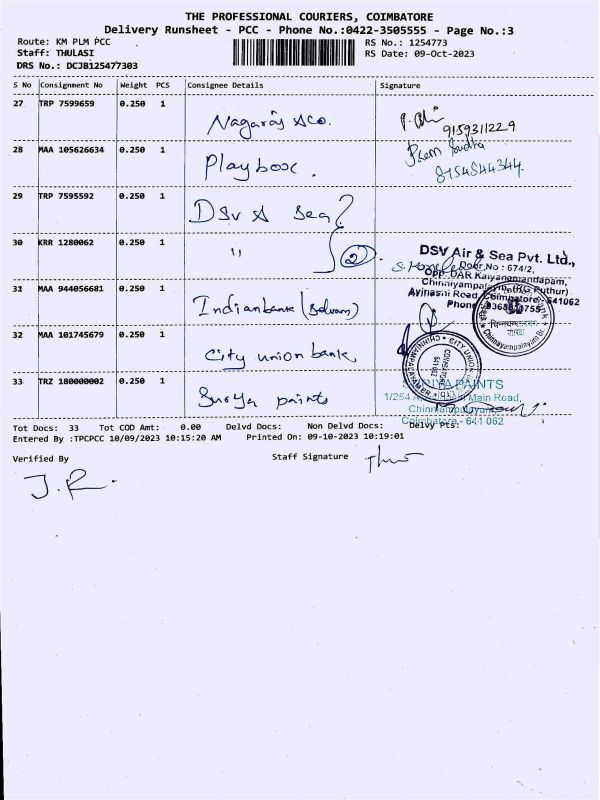 THE PROFESSIONAL COURIERS, COIMBATORE
Delivery Runsheet - PCC - Phone No.:0422-3505555 - Page No.:3
Route: KM PLM PCC
RS No.: 1254773
Staff: THULASI
RS Date: 09-Oct-2023
DRS No.: DCJB125477303
S No Consignment No Weight PCS Consignee Details Signature
27 TRP 7599659 0.250 1 Nagaraj &Co.
9159311229
28 MAA 105626634 0.250 1 Play box.
Prem
8754544344
29 TRP 7595592 0.250 1 DSV A Sea
30 KRR 1280062 0.250 1 " 2
DSV Air & Sea Pvt. Ltd.,
Door No : 674/2,
Opp. DAR Kalyanamandapam,
Chinniyampalayam (RG Puthur)
Avinashi Road, Coimbatore - 641062
31 MAA 944056681 0.250 1 Indianbank (Selvam)
32 MAA 101745679 0.250 1 City union bank
33 TRZ 180000002 0.250 1 Surya paints
SURIYA PAINTS
1/254 Main Road,
Chinniampalayam
Coimbatore - 641 062
Tot Docs: 33 Tot COD Amt: 0.00 Delvd Docs: Non Delvd Docs: Delvy Pts:
Entered By :TPCPCC 10/09/2023 10:15:20 AM Printed On: 09-10-2023 10:19:01
Verified By
Staff Signature
J.R.